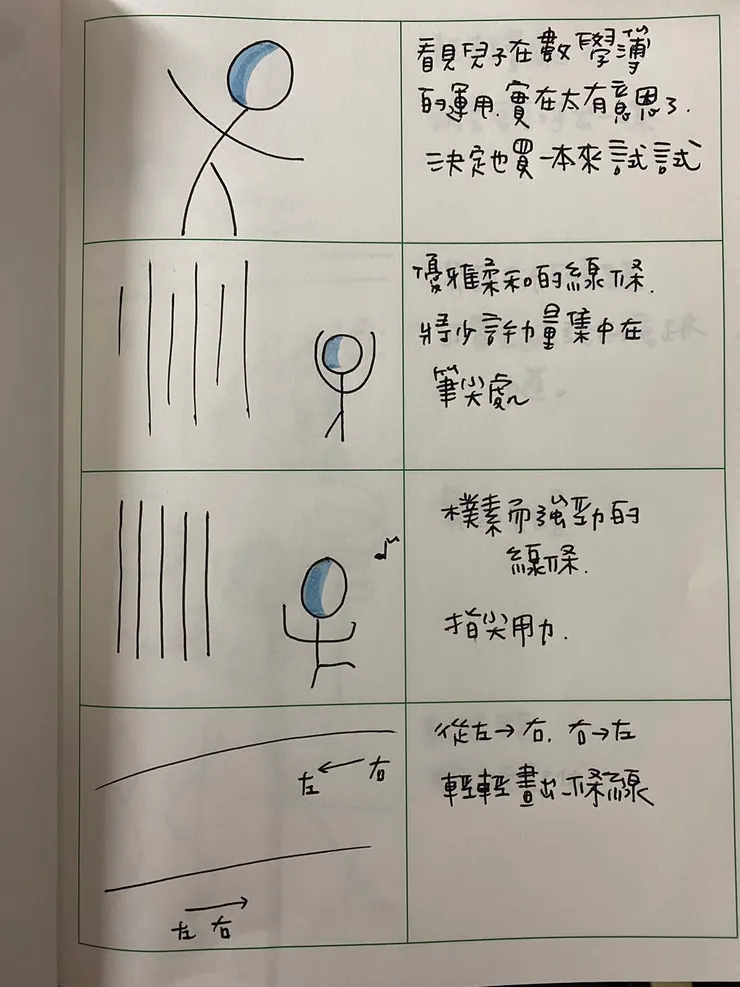 看見兒子在數學簿
的運用.實在太有意思了.
決定也買一本來試試
優雅柔和的線條.
將少許力量集中在
筆尖處
樸素而強勁的
線條.
指尖用力.
左←右
左 右
從左→右, 右→左
輕輕畫出一條線